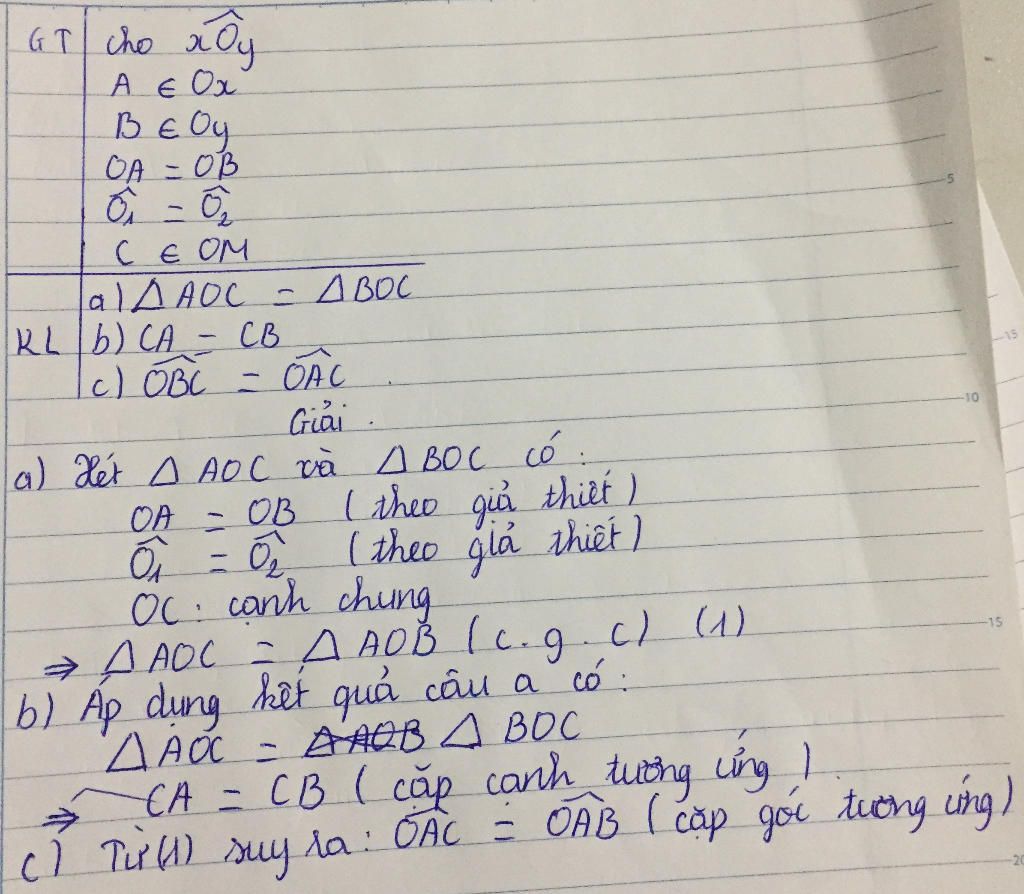 GT cho xÔy
A ∈ Ox
B ∈ Oy
OA = OB
Ô₁ = Ô₂
C ∈ OM
a) △ AOC = △ BOC
KL b) CA = CB
c) \widehat{OBC} = \widehat{OAC}
Giải.
a) Xét △ AOC và △ BOC có:
OA = OB (theo giả thiết)
Ô₁ = Ô₂ (theo giả thiết)
OC: cạnh chung
⇒ △ AOC = △ AOB (c.g.c) (1)
b) Áp dụng kết quả câu a có:
△ AOC = △ AOB △ BOC
⇒ CA = CB (cặp cạnh tương ứng)
c) Từ (1) suy ra: \widehat{OAC} = \widehat{OAB} (cặp góc tương ứng)
5
10
15
20
15